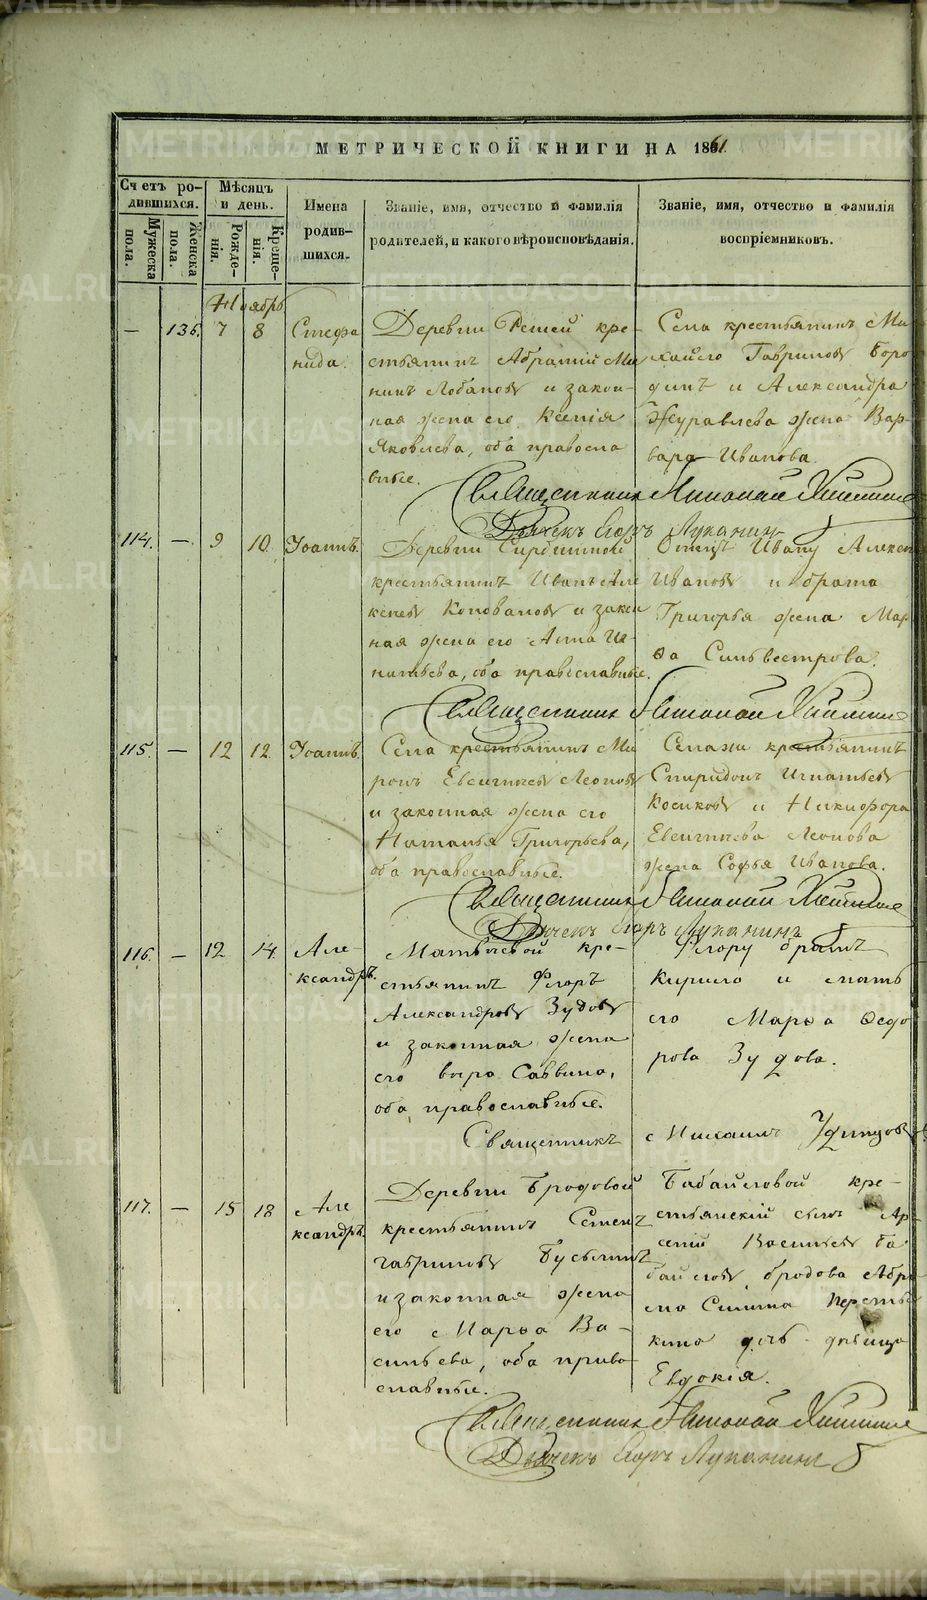 МЕТРИЧЕСКОЙ КНИГИ НА 1861.
Счетъ ро-
дившихся.
Мужеска
пола.
Женска
пола.
Мѣсяцъ
и день.
Рожде-
нія.
Креще-
нія.
Имена
родив-
шихся.
Званіе, имя, отчество и фамилія
родителей, и какого вѣроисповѣданія.
Званіе, имя, отчество и фамилія
воспріемниковъ.
Ноябрь
— 136. 7 8
Стефа
нида.
Деревни кре-
стьянинъ Ми
нинъ Лобановъ и закон-
ная жена его Ксенія
Яковлева, оба правосла
вные.
Села крестьянинъ Ми
хайло Гавриловъ Боро
динъ и Александра
Журавлева жена Вар-
вара Иванова.
Священникъ Николай
Дьячекъ Егоръ Луканинъ
114. — 9 10.
Іоаннъ.
Деревни
крестьянинъ Иванъ Але
ксеевъ Коноваловъ и закон
ная жена его Анна Иг-
натьева, оба православные.
Отецъ Ивану Алексей
Ивановъ и брата
Григорья жена Мар
ѳа Сильвестрова.
Священникъ Николай
115. — 12 12.
Іоаннъ.
Села крестьянинъ Ми
ронъ Евсигнеевъ Леоновъ
и законная жена его
Наталья Григорьева,
оба православные.
Села крестьянинъ
Спиридонъ Игнатьевъ
Косиковъ и Никифора
Евсигнеева Леонова
жена Софья Иванова.
Священникъ Николай
Дьячекъ Егоръ Луканинъ
116. — 12 14.
Але-
ксандръ.
Матвѣевой кре-
стьянинъ Флоръ
Александровъ Зудовъ
и законная жена
его вѣра Саввина,
оба православные.
Флору братъ
Кирило и мать
его Марѳа Ѳедо
рова Зудова.
Священникъ Михаилъ Удинцовъ
117. — 15 18
Але
ксандръ.
Деревни Бродовой
крестьянинъ Семенъ
гавриловъ Бусыгинъ
и законная жена
его Марѳа Ва-
сильева, оба право-
славные.
Бабайловой кре-
стьянскій сынъ Ар-
сеній Васильевъ ба
байловъ, бродова Абра
ма
кина дѣвица
Евдокія.
Священникъ Николай
Дьячекъ Егоръ Луканинъ
METRIKI.GASO-URAL.RU